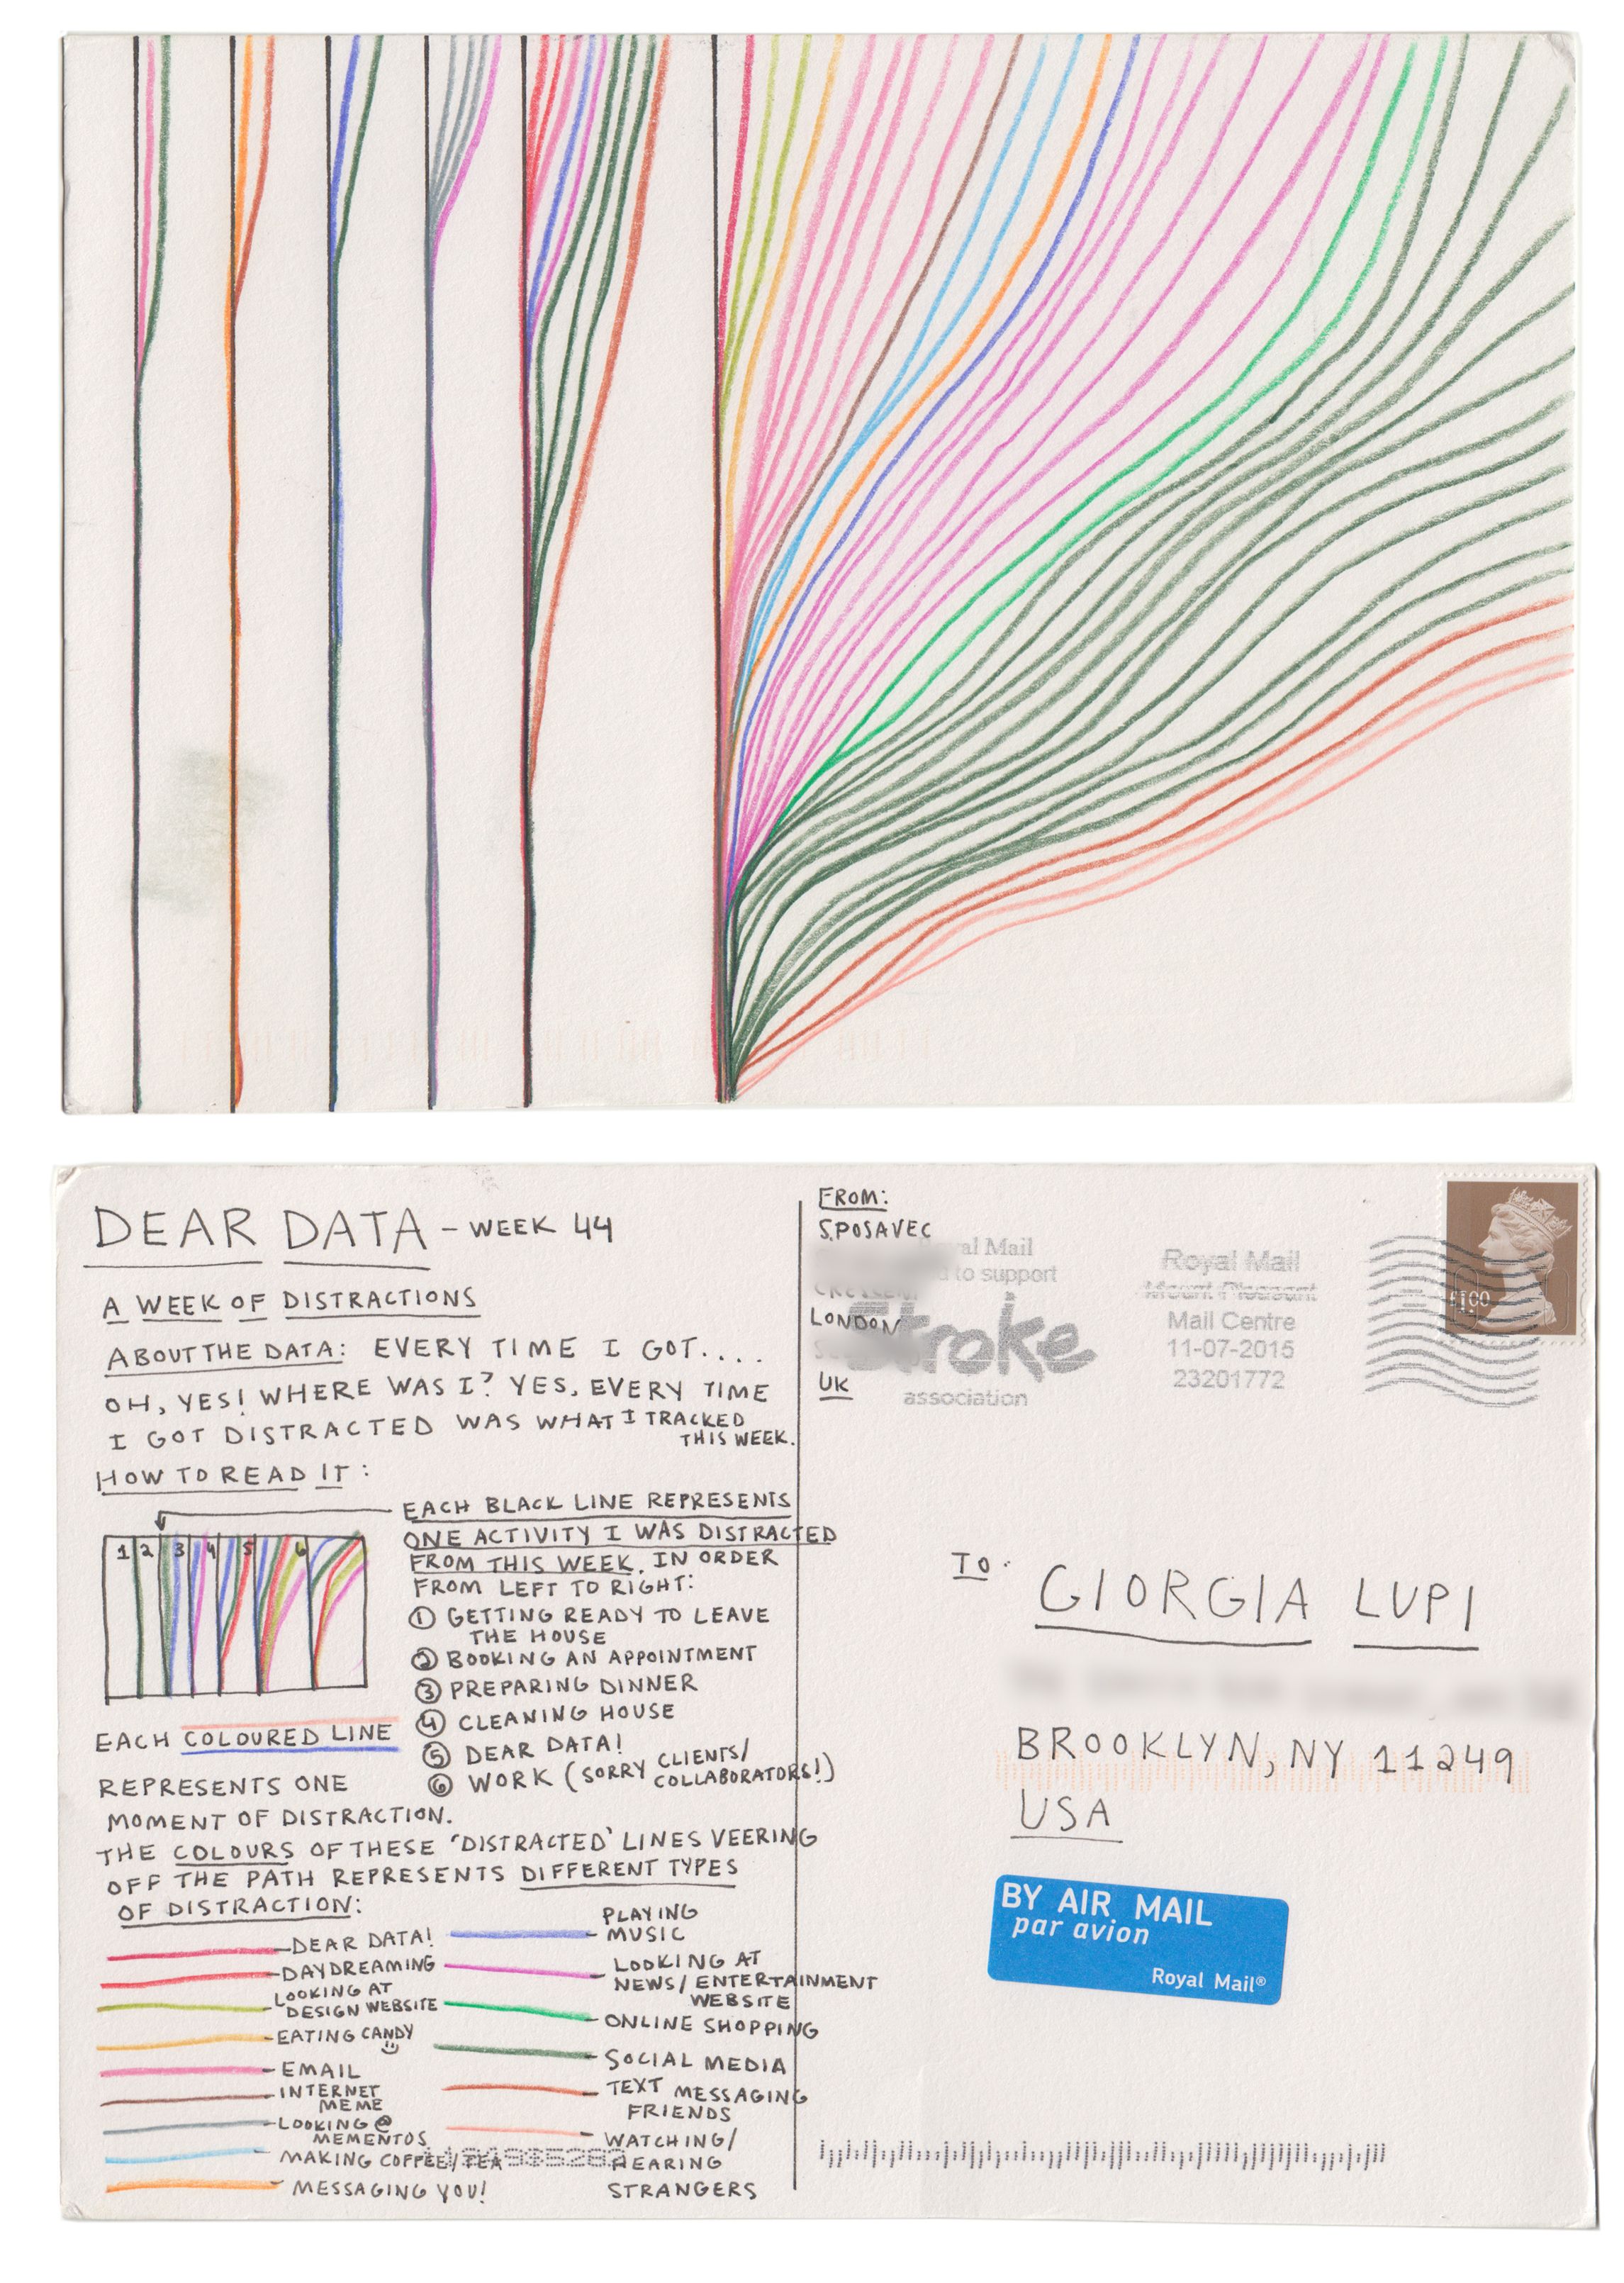 DEAR DATA - WEEK 44
A WEEK OF DISTRACTIONS
ABOUT THE DATA: EVERY TIME I GOT....
OH, YES! WHERE WAS I? YES, EVERY TIME
I GOT DISTRACTED WAS WHAT I TRACKED
THIS WEEK.
HOW TO READ IT:
EACH BLACK LINE REPRESENTS
ONE ACTIVITY I WAS DISTRACTED
FROM THIS WEEK. IN ORDER
FROM LEFT TO RIGHT:
1 2 3 4 5 6
① GETTING READY TO LEAVE
THE HOUSE
② BOOKING AN APPOINTMENT
③ PREPARING DINNER
④ CLEANING HOUSE
⑤ DEAR DATA!
⑥ WORK (SORRY CLIENTS/
COLLABORATORS!)
EACH COLOURED LINE
REPRESENTS ONE
MOMENT OF DISTRACTION.
THE COLOURS OF THESE 'DISTRACTED' LINES VEERING
OFF THE PATH REPRESENTS DIFFERENT TYPES
OF DISTRACTION:
DEAR DATA!
DAYDREAMING
LOOKING AT
DESIGN WEBSITE
EATING CANDY
EMAIL
INTERNET
MEME
LOOKING @
MEMENTOS
MAKING COFFEE/TEA
MESSAGING YOU!
PLAYING
MUSIC
LOOKING AT
NEWS/ENTERTAINMENT
WEBSITE
ONLINE SHOPPING
SOCIAL MEDIA
TEXT MESSAGING
FRIENDS
WATCHING/
HEARING
STRANGERS
FROM:
S.POSAVEC
LONDON
UK
Mail
to support
Stroke
association
Royal Mail
Mount Pleasant
Mail Centre
11-07-2015
23201772
£1.00
TO:
GIORGIA LUPI
BROOKLYN, NY 11249
USA
BY AIR MAIL
par avion
Royal Mail®